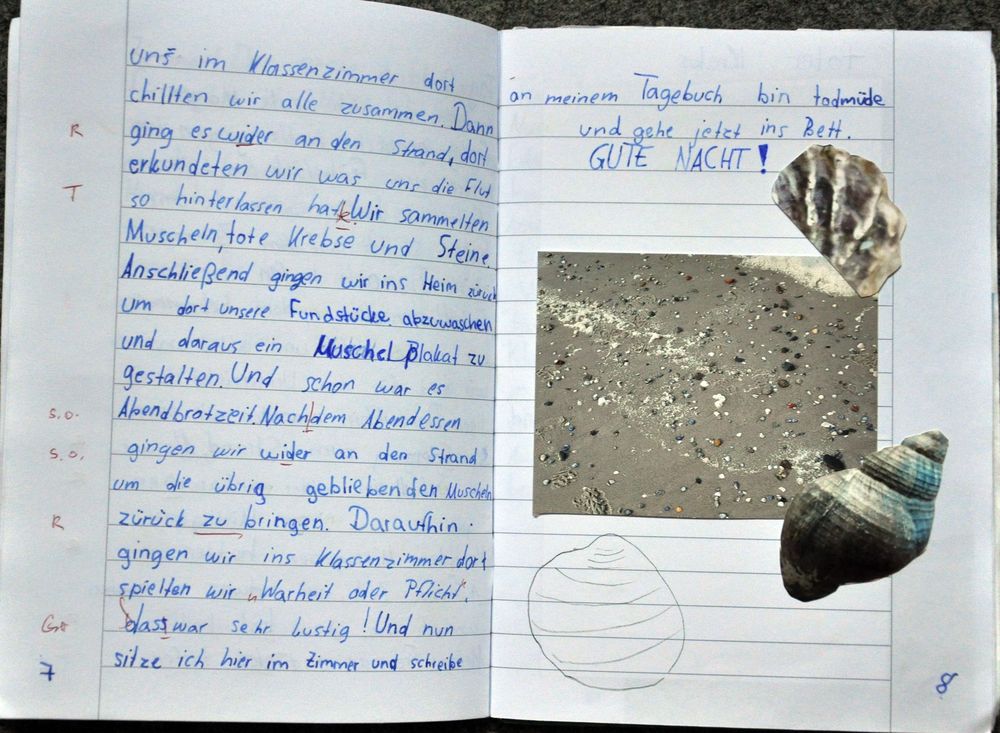 uns im Klassenzimmer dort
chillten wir alle zusammen. Dann
R ging es wider an den Strand, dort
erkundeten wir was uns die Flut
T so hinterlassen hat. Wir sammelten
Muscheln, tote Krebse und Steine.
Anschließend gingen wir ins Heim zurück
um dort unsere Fundstücke abzuwaschen
und daraus ein Muschel Plakat zu
gestalten. Und schon war es
s.o. Abendbrotzeit. Nach dem Abendessen
s.o. gingen wir wider an den Strand
um die übrig geblieben den Muscheln
R zürück zu bringen. Daraufhin
gingen wir ins Klassenzimmer dort
spielten wir „Warheit oder Pflicht".
Gr dass war sehr lustig! Und nun
sitze ich hier im Zimmer und schreibe
7
an meinem Tagebuch bin todmüde
und gehe jetzt ins Bett.
GUTE NACHT!
8